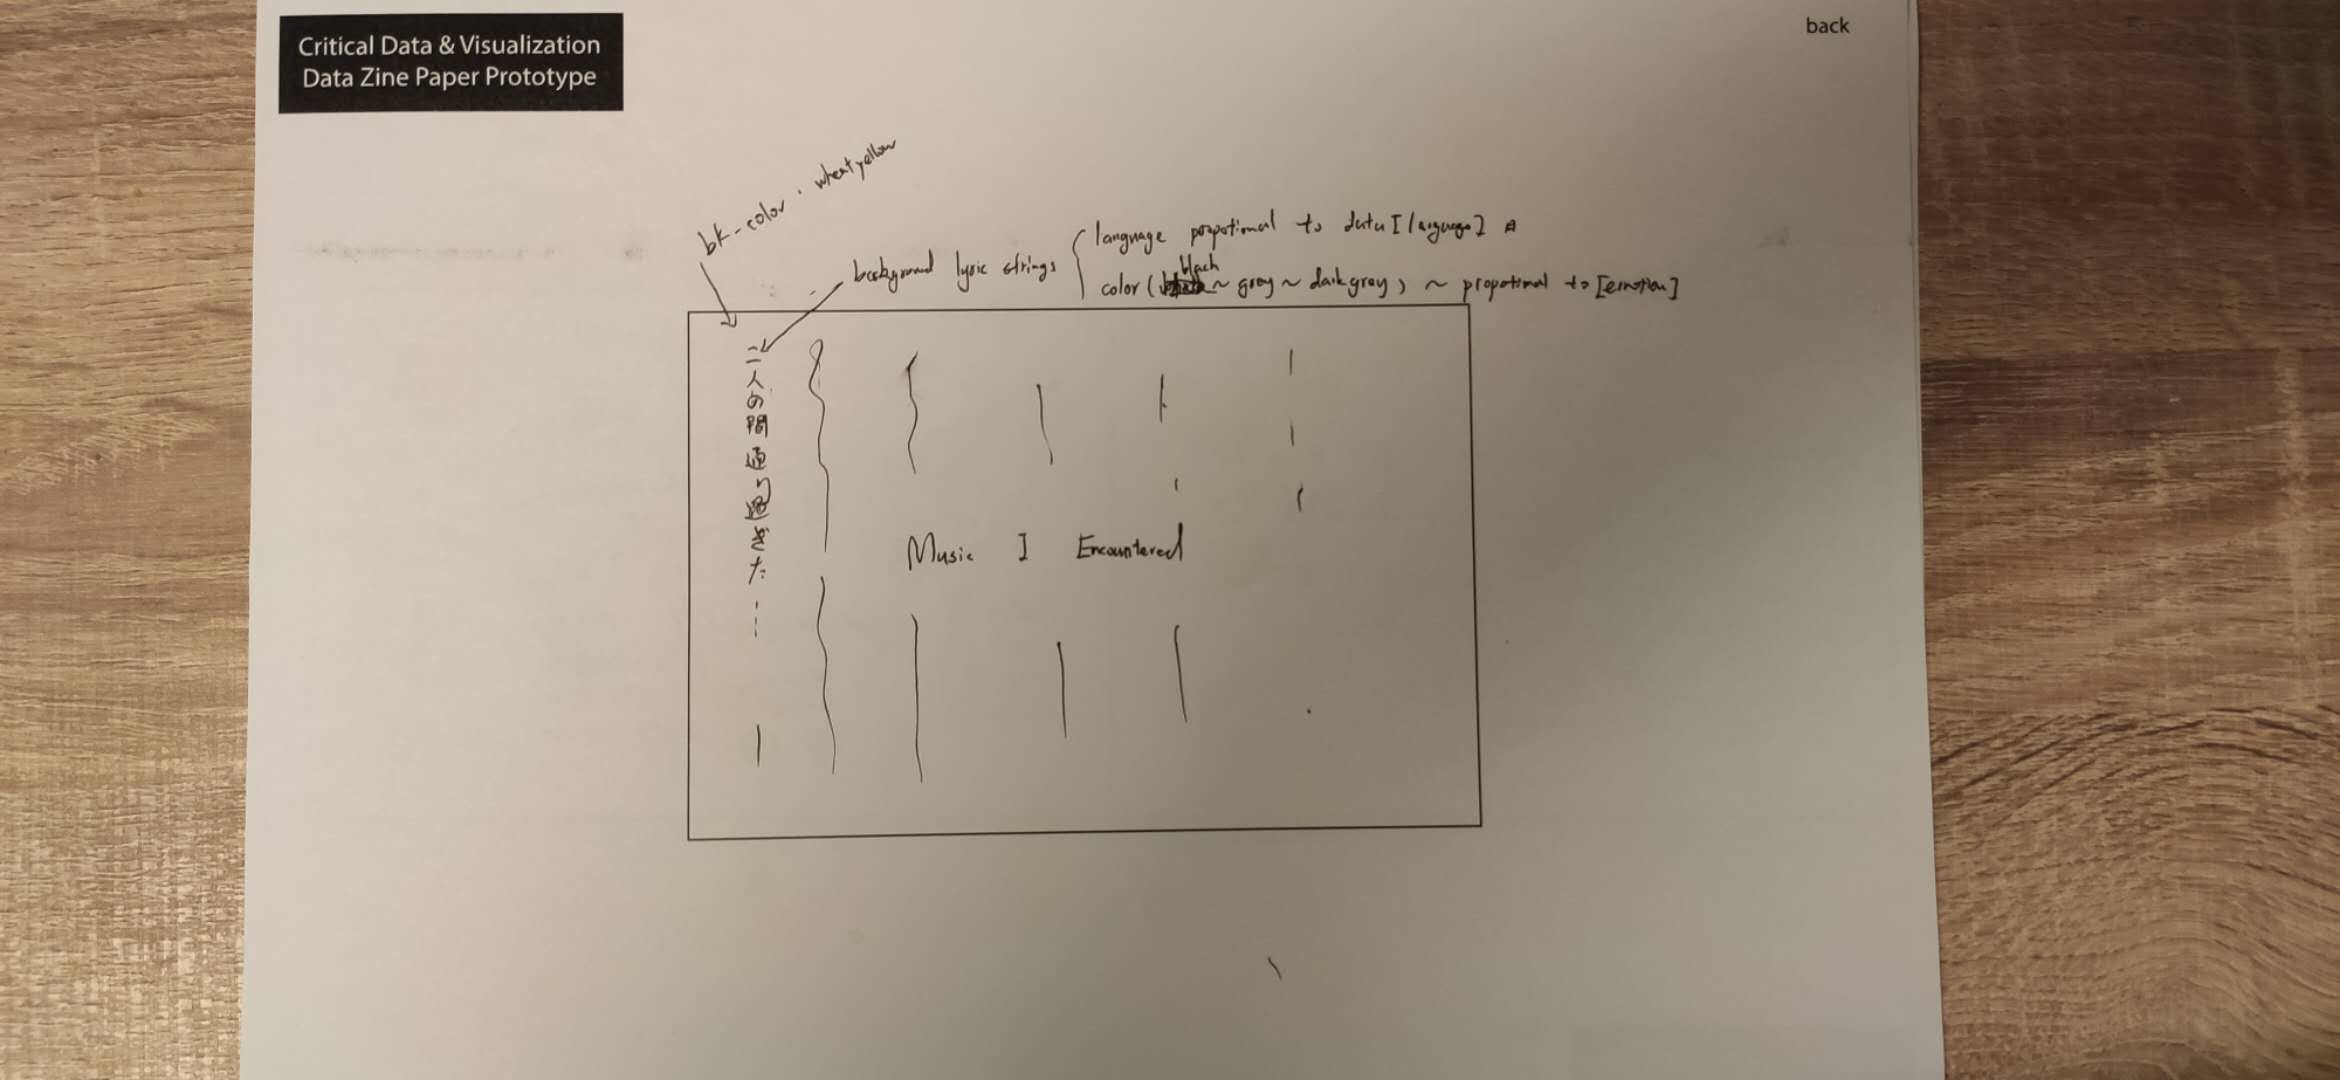 Critical Data & Visualization
Data Zine Paper Prototype
back
bk-color : wheatyellow
background lyric strings
language propotional to data[language]
color (black ~ grey ~ darkgray) ~ propotional to [emotion]
二人の間通り過ぎた……
Music I Encountered